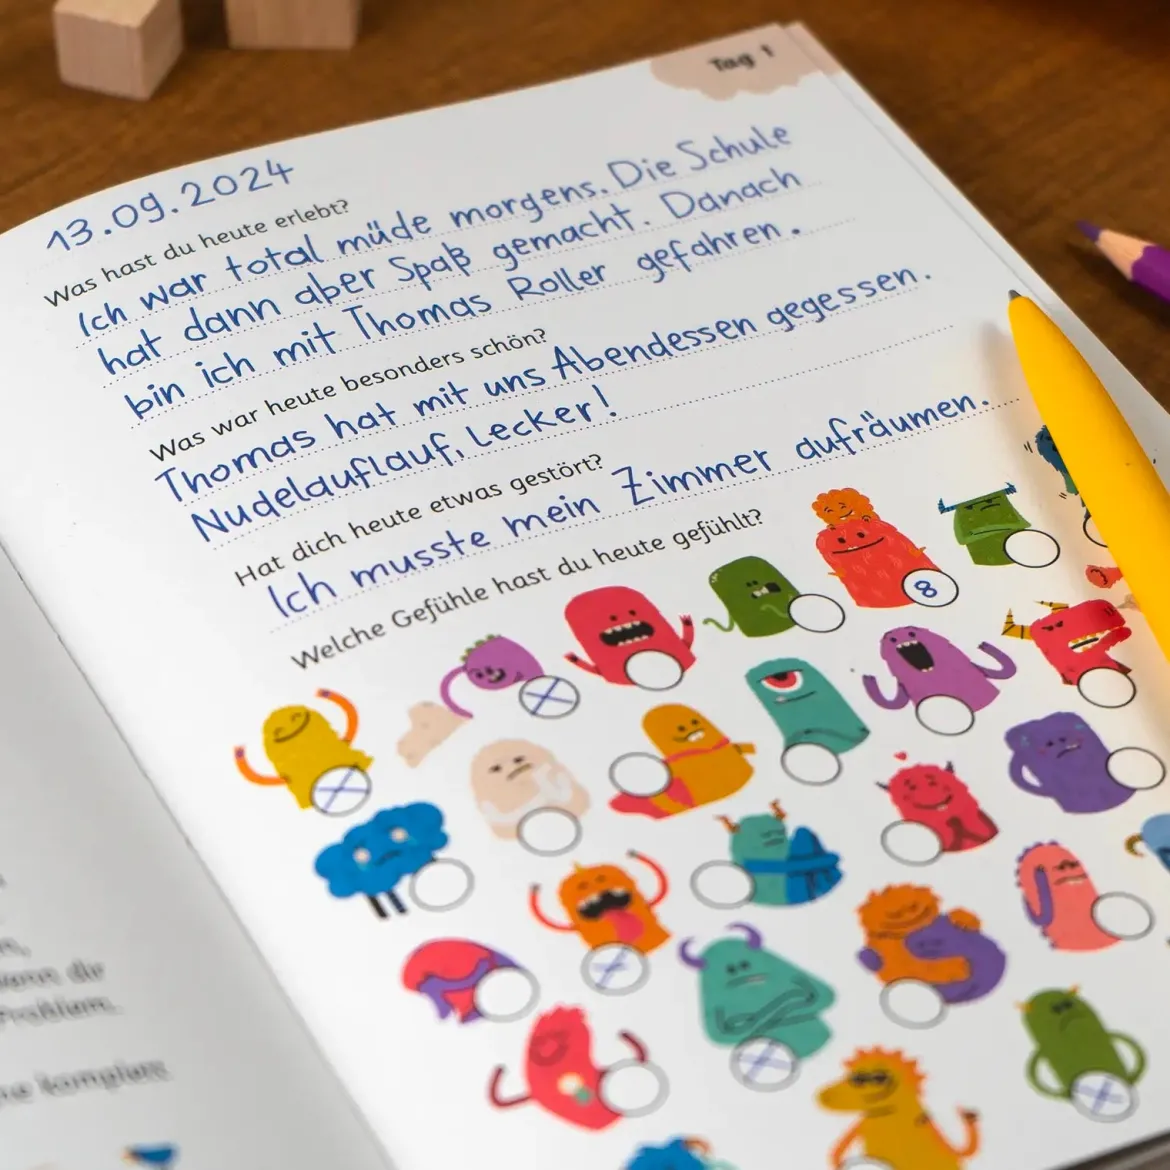 Tag 1
13.09.2024
Was hast du heute erlebt?
Ich war total müde morgens. Die Schule
hat dann aber Spaß gemacht. Danach
bin ich mit Thomas Roller gefahren.
Was war heute besonders schön?
Thomas hat mit uns Abendessen gegessen.
Nudelauflauf, Lecker!
Hat dich heute etwas gestört?
Ich musste mein Zimmer aufräumen.
Welche Gefühle hast du heute gefühlt?
8
dir
Problem.
komplett